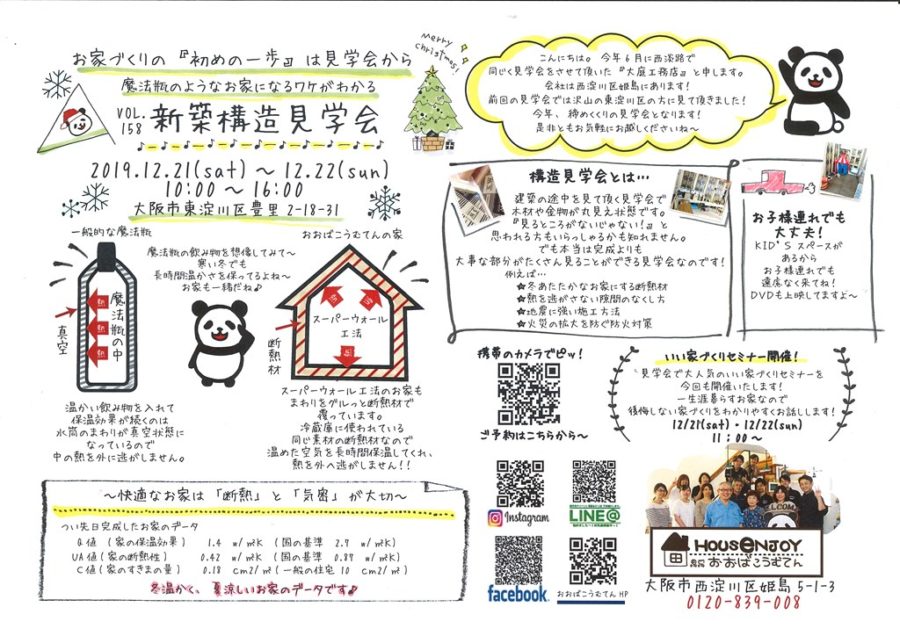 お家づくりの『初めの一歩』は見学会から
魔法瓶のようなお家になるワケがわかる
VOL.158 新築構造見学会
2019.12.21(sat)～12.22(sun)
10:00～16:00
大阪市東淀川区豊里2-18-31
merry christmas!
こんにちは。今年6月に西淡路で
同じく見学会をさせて頂いた『大庭工務店』と申します。
会社は西淀川区姫島にあります!
前回の見学会では沢山の東淀川区の方に見て頂きました!
今年、締めくくりの見学会となります!
是非ともお気軽にお越しくださいね～
構造見学会とは…
建築の途中を見て頂く見学会で
木材や金物が丸見え状態です。
『見るところがないじゃない!』と
思われる方もいらっしゃるかも知れません。
でも本当は完成よりも
大事な部分がたくさん見ることができる見学会なのです!
例えば…
★冬あたたかなお家にする断熱材
★熱を逃がさない隙間のなくし方
★地震に強い施工方法
★火災の拡大を防ぐ防火対策
お子様連れでも
大丈夫!
KID'Sスペースが
あるから
お子様連れでも
遠慮なく来てね!
DVDも上映してますよ～
一般的な魔法瓶
魔法瓶の飲み物を想像してみて～
寒い冬でも
長時間温かさを保ってるよね～
お家も一緒だね♪
おおばこうむてんの家
魔法瓶の中
熱
熱
熱
真空
スーパーウォール
工法
熱
熱
熱
断熱材
温かい飲み物を入れて
保温効果が続くのは
水筒のまわりが真空状態に
なっているので
中の熱を外に逃がしません。
スーパーウォール工法のお家も
まわりをグルっと断熱材で
覆っています。
冷蔵庫に使われている
同じ素材の断熱材なので
温めた空気を長時間保温してくれ、
熱を外へ逃がしません!!
携帯のカメラでピッ!
ご予約はこちらから～
Instagram
LINE@
facebook
おおばこうむてんHP
いい家づくりセミナー開催!
見学会で大人気のいい家づくりセミナーを
今回も開催いたします!
一生涯暮らすお家なので
後悔しない家づくりをわかりやすくお話します!
12/21(sat)・12/22(sun)
11:00～
～快適なお家は「断熱」と「気密」が大切～
つい先日完成したお家のデータ
Q値(家の保温効果) 1.4 w/㎡K (国の基準 2.7 w/㎡K)
UA値(家の断熱性) 0.42 w/㎡K (国の基準 0.87 w/㎡K)
C値(家のすきまの量) 0.18 cm2/㎡(一般の住宅 10 cm2/㎡)
冬温かく、夏涼しいお家のデータです♪
WELCOME
HOUSENJOY
おおばこうむてん
大阪市西淀川区姫島5-1-3
0120-839-008